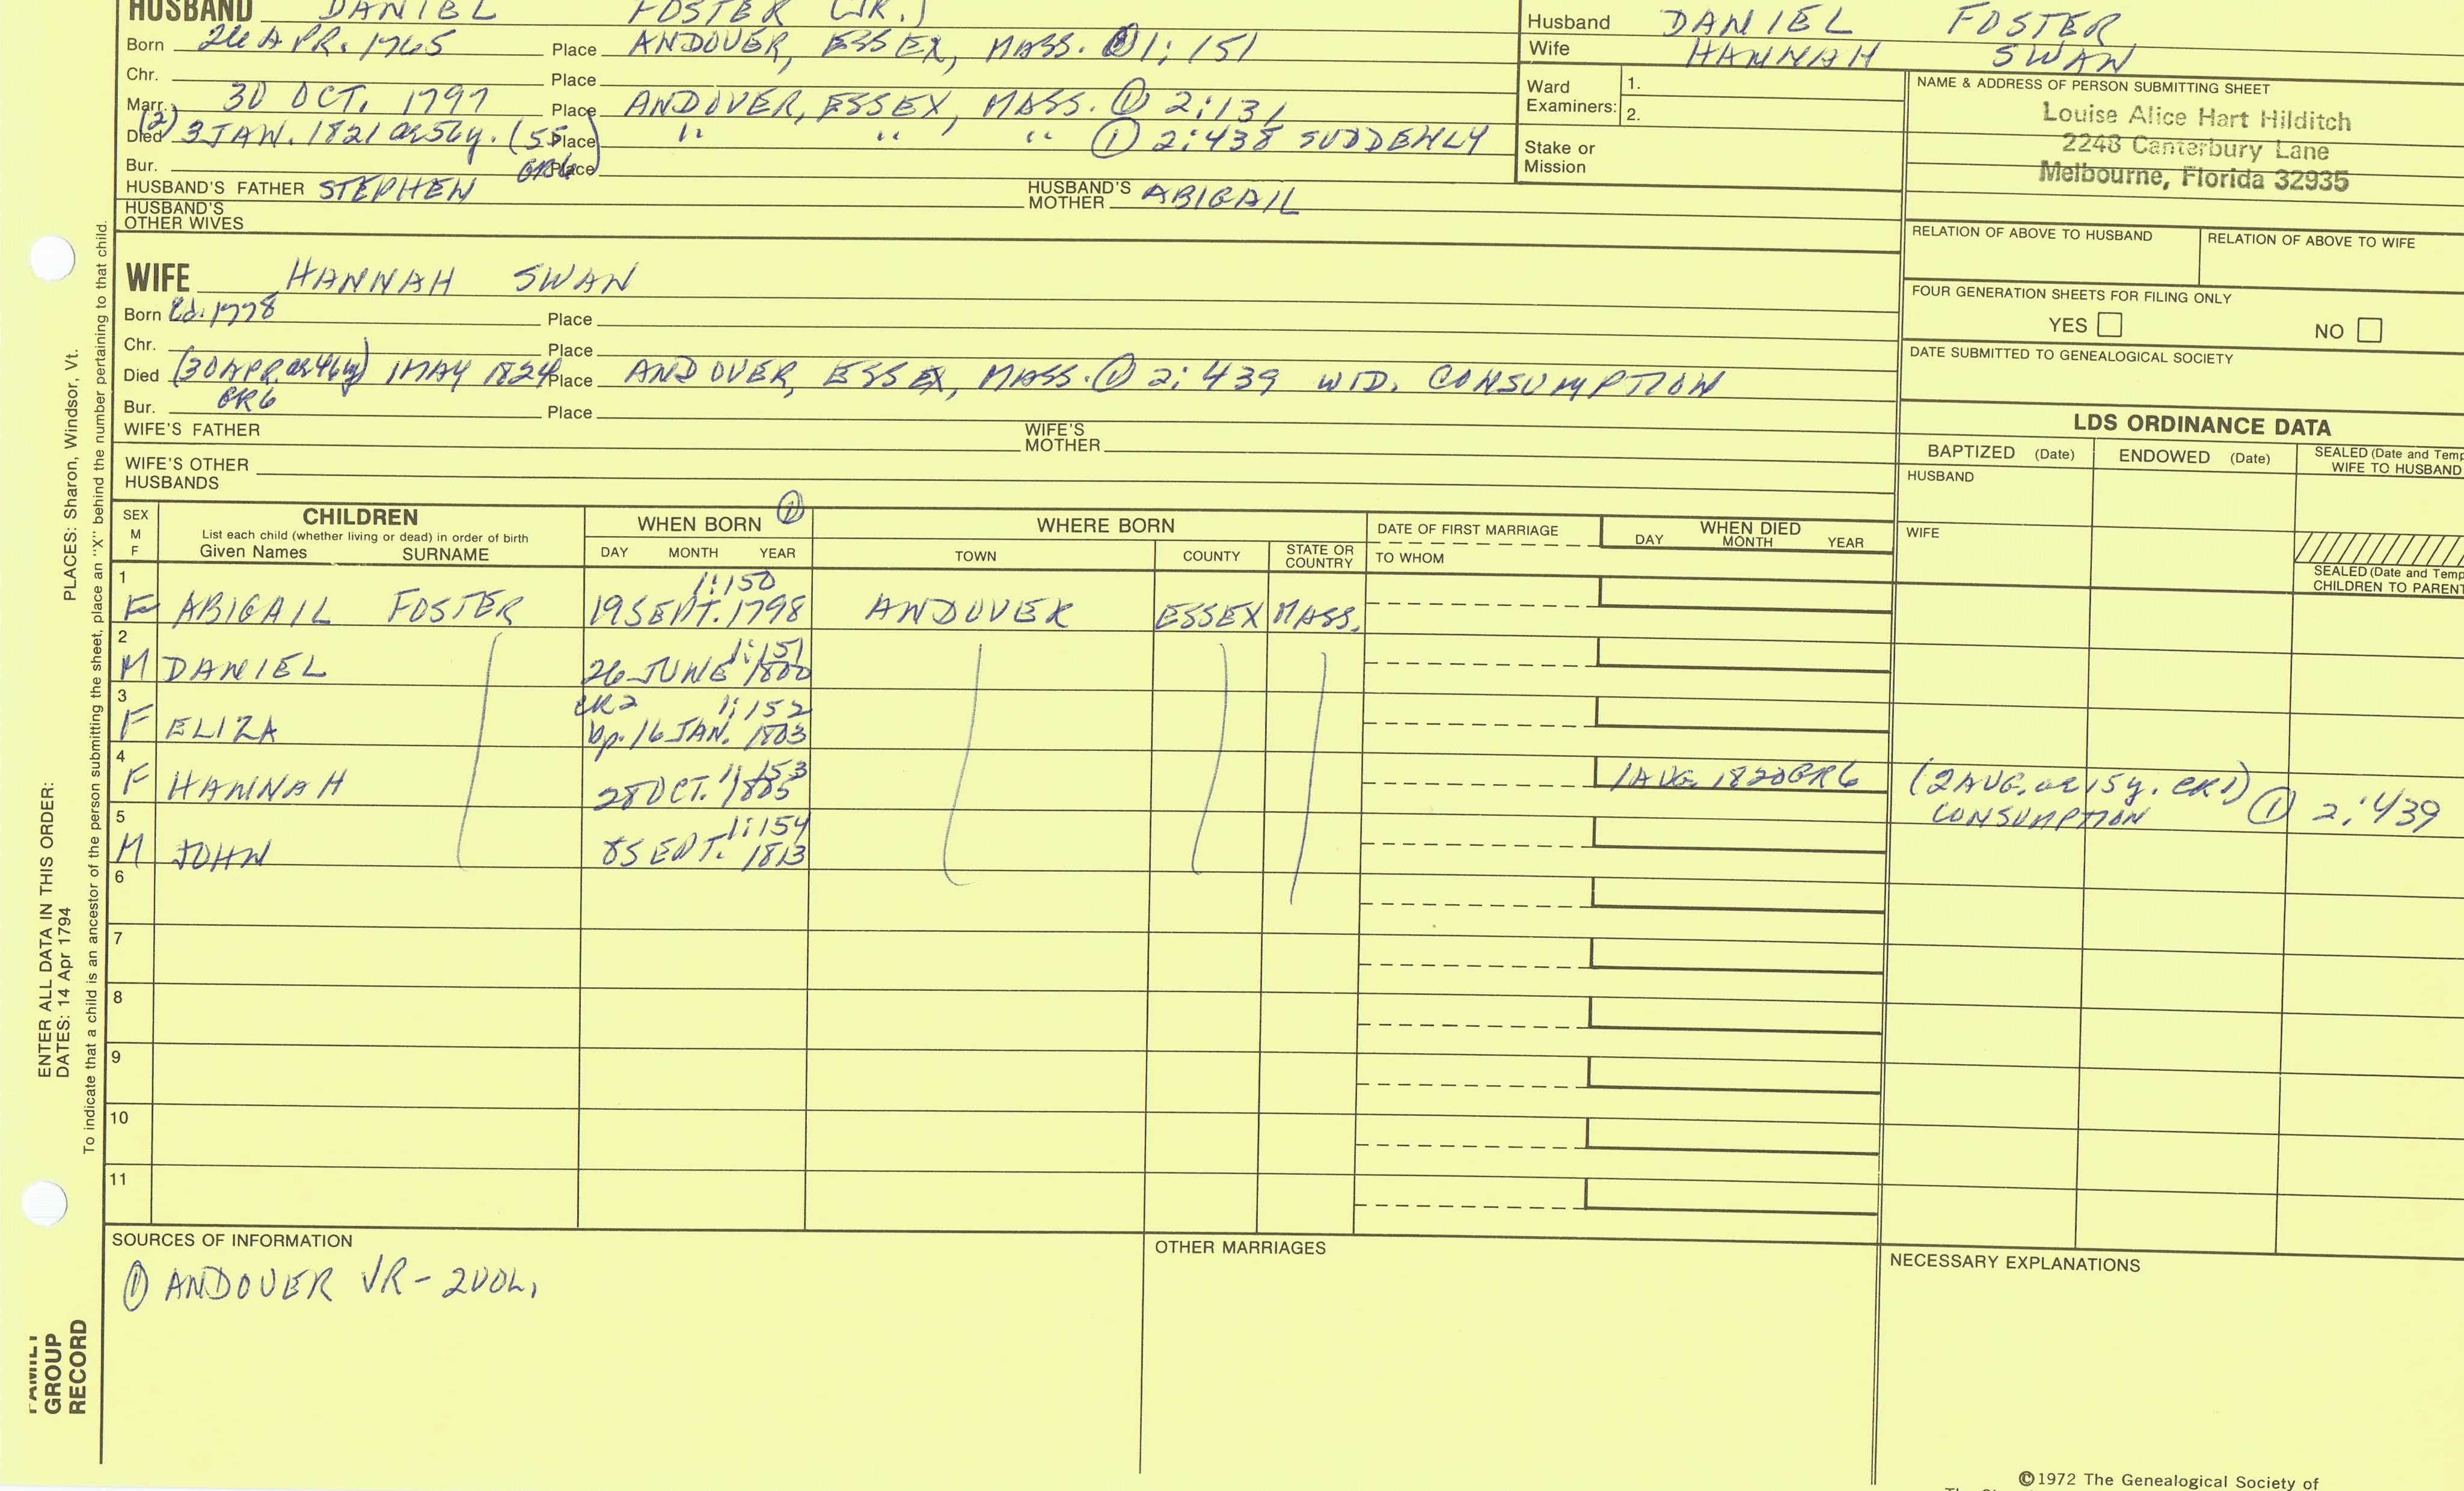 HUSBAND DANIEL FOSTER (JR.)
Born APR. 1765 Place ANDOVER, ESSEX, MASS. 1:151
Chr. Place
Marr. 30 OCT. 1797 Place ANDOVER, ESSEX, MASS. ① 2:131
(2)
Died 3 JAN. 1821 ae 56y. (55 Place " " " ① 2:438 SUDDENLY
GR6)
Bur. Place
HUSBAND'S FATHER STEPHEN HUSBAND'S MOTHER ABIGAIL
HUSBAND'S OTHER WIVES
Husband DANIEL FOSTER
Wife HANNAH SWAN
Ward Examiners: 1.
2.
Stake or Mission
NAME & ADDRESS OF PERSON SUBMITTING SHEET
Louise Alice Hart Hilditch
2248 Canterbury Lane
Melbourne, Florida 32935
RELATION OF ABOVE TO HUSBAND RELATION OF ABOVE TO WIFE
FOUR GENERATION SHEETS FOR FILING ONLY
YES NO
DATE SUBMITTED TO GENEALOGICAL SOCIETY
WIFE HANNAH SWAN
Born 1778 Place
Chr. Place
Died (30 APR. ae 46y) 1 MAY 1824 Place ANDOVER, ESSEX, MASS. ① 2:439 WID. CONSUMPTION
GR6
Bur. Place
WIFE'S FATHER WIFE'S MOTHER
WIFE'S OTHER HUSBANDS
LDS ORDINANCE DATA
BAPTIZED (Date) ENDOWED (Date) SEALED (Date and Temp
WIFE TO HUSBAND
HUSBAND
WIFE
SEALED (Date and Temp
CHILDREN TO PARENT
SEX M F
CHILDREN
List each child (whether living or dead) in order of birth
Given Names SURNAME
WHEN BORN ①
DAY MONTH YEAR
WHERE BORN
TOWN COUNTY STATE OR COUNTRY
DATE OF FIRST MARRIAGE
TO WHOM
WHEN DIED
DAY MONTH YEAR
1 1:150
F ABIGAIL FOSTER 19 SEPT. 1798 ANDOVER ESSEX MASS.
2 1:151
M DANIEL 26 JUNE 1800
3 CR2 1:152
F ELIZA bp. 16 JAN. 1803
4 1:153
F HANNAH 28 OCT. 1805 1 AUG. 1820 GR6 (2 AUG. ae 15y. CR1) ① 2:439
CONSUMPTION
5 1:154
M JOHN 8 SEPT. 1813
6
7
8
9
10
11
SOURCES OF INFORMATION
① ANDOVER VR - 2 VOL.
OTHER MARRIAGES
NECESSARY EXPLANATIONS
©1972 The Genealogical Society of
PLACES: Sharon, Windsor, Vt.
ENTER ALL DATA IN THIS ORDER:
DATES: 14 Apr 1794
To indicate that a child is an ancestor of the person submitting the sheet, place an "X" behind the number pertaining to that child.
FAMILY
GROUP
RECORD